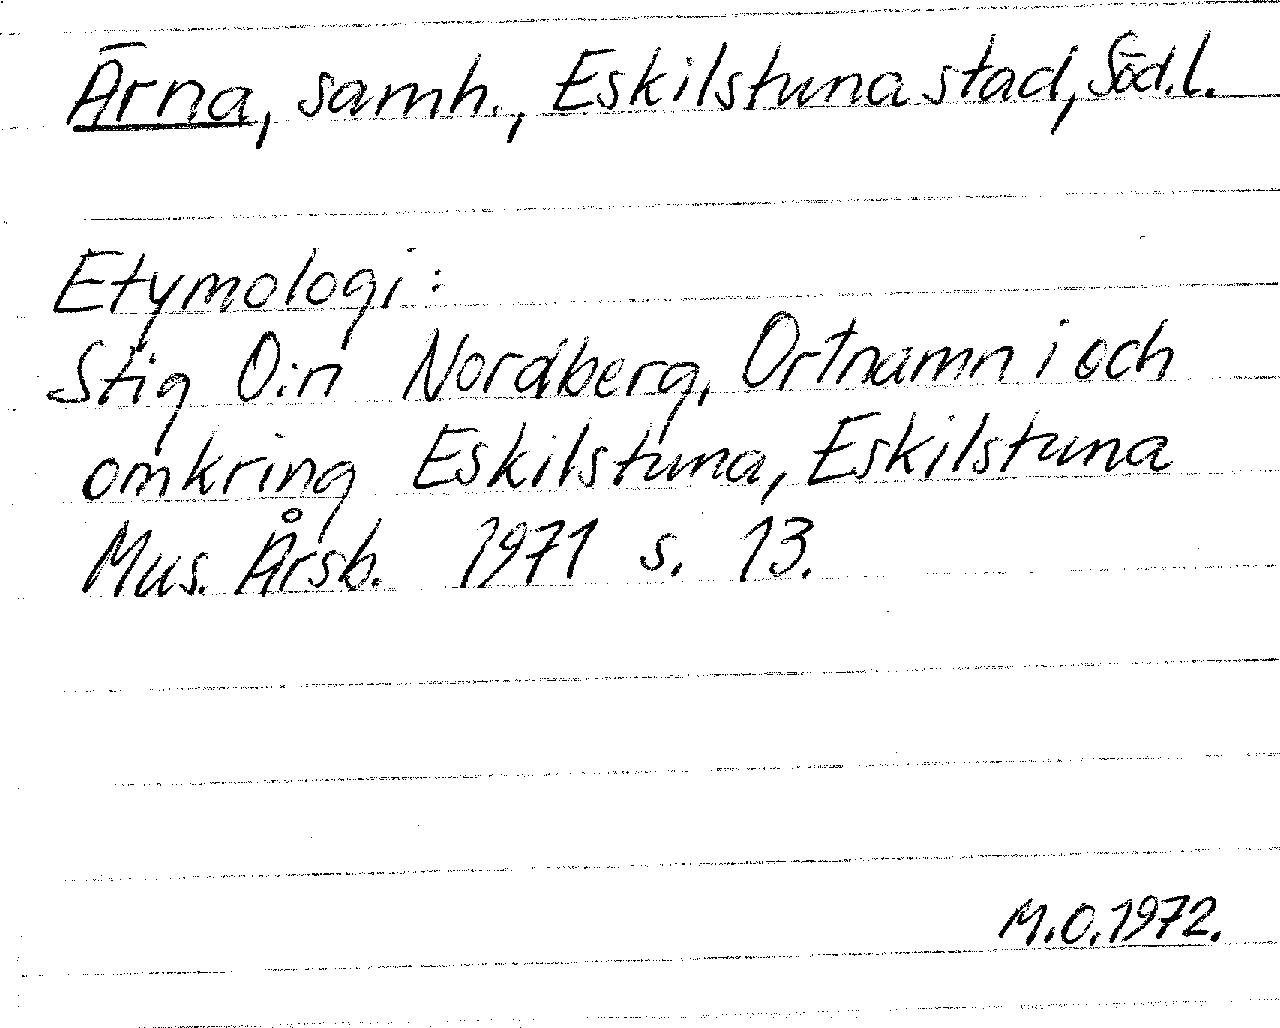 Ärna, samh., Eskilstuna stad, Söd.l.
Etymologi:
Stig O:n Nordberg, Ortnamn i och
omkring Eskilstuna, Eskilstuna
Mus. Årsb. 1971 s. 13.
M.O.1972.